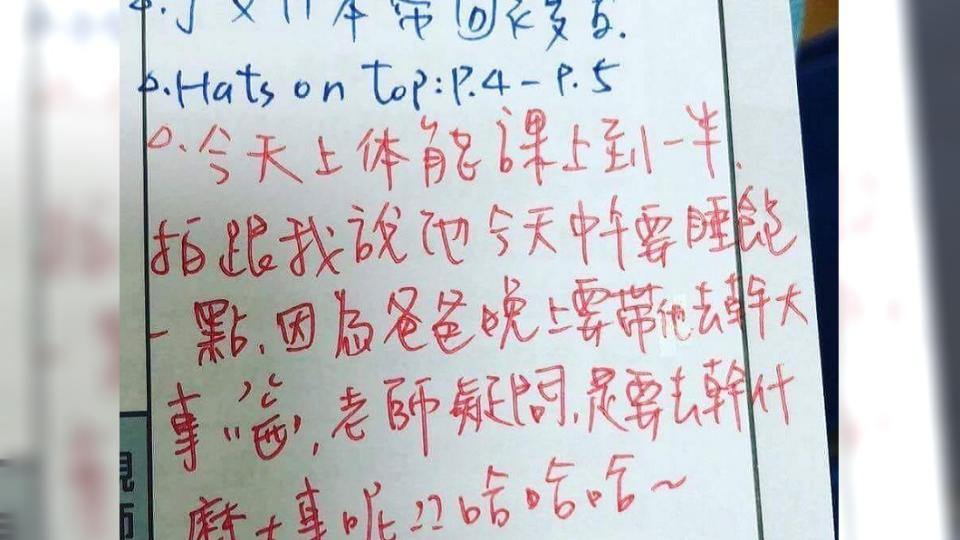 本帶回
△.Hats on top:P.4-P.5
△.今天上体能課上到一半.
拍跟我說他今天中午要睡飽
一點,因為爸爸晚上要帶他去幹大
事,老師疑問,是要去幹什
麼大事呢??哈哈哈~